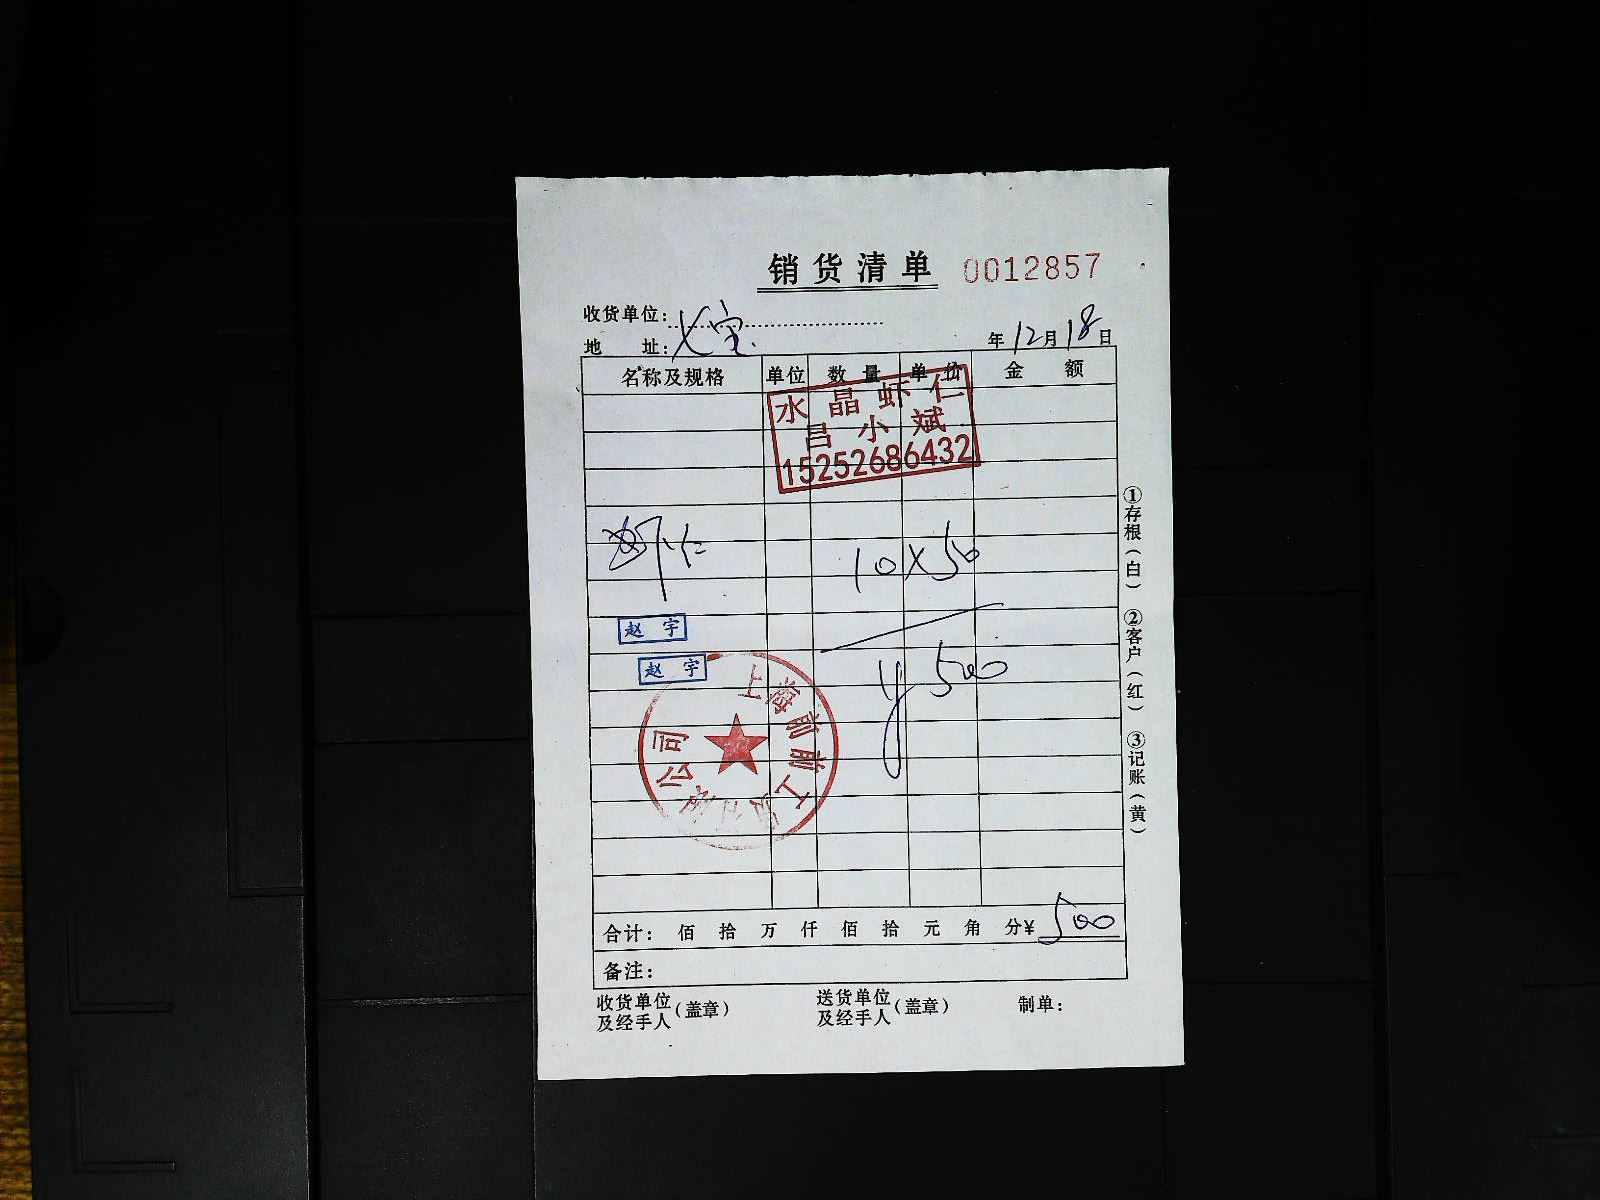 销货清单 0012857
收货单位:
地 址: 七宝
年12月18日
名称及规格 单位 数量 单价 金额
水晶虾仁
吕小斌
15252686432
虾仁 10×50
赵宇
赵宇
¥500
上海前前工
公司
合计: 佰 拾 万 仟 佰 拾 元 角 分¥ 500
备注:
收货单位及经手人(盖章) 送货单位及经手人(盖章) 制单:
①存根(白) ②客户(红) ③记账(黄)